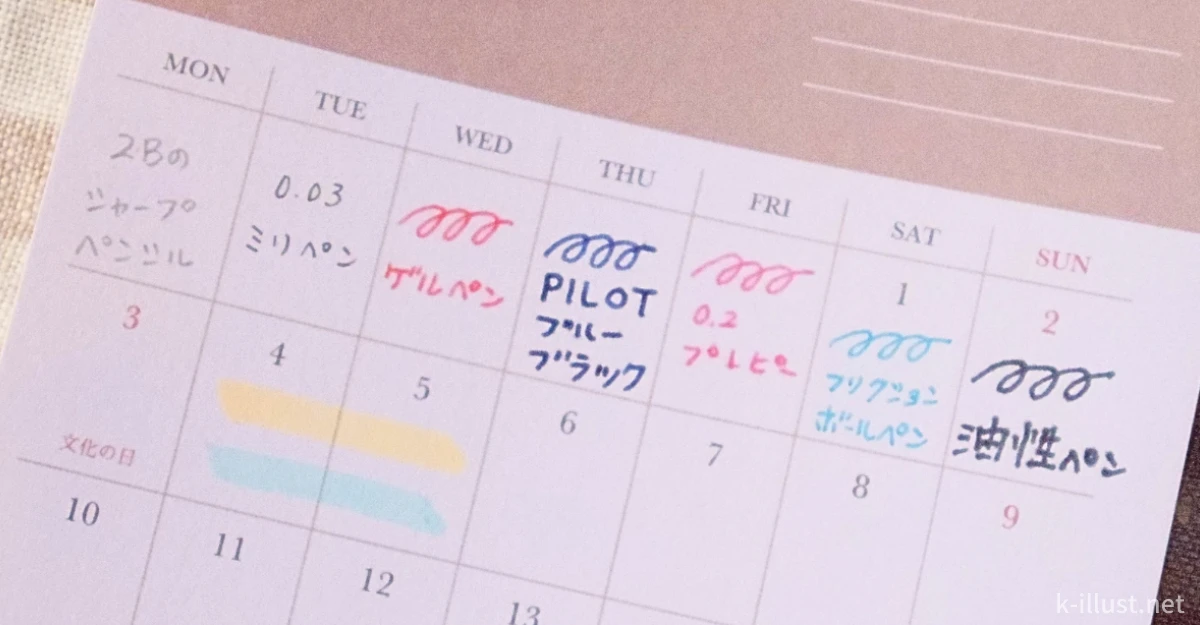 MON TUE WED THU FRI SAT SUN
2Bの
シャープ
ペンシル
0.03
ミリペン
ゲルペン
PILOT
ブルー
ブラック
0.2
プレピー
1
フリクション
ボールペン
2
油性ペン
3
文化の日
4
5
6
7
8
9
10
11
12
13
k-illust.net